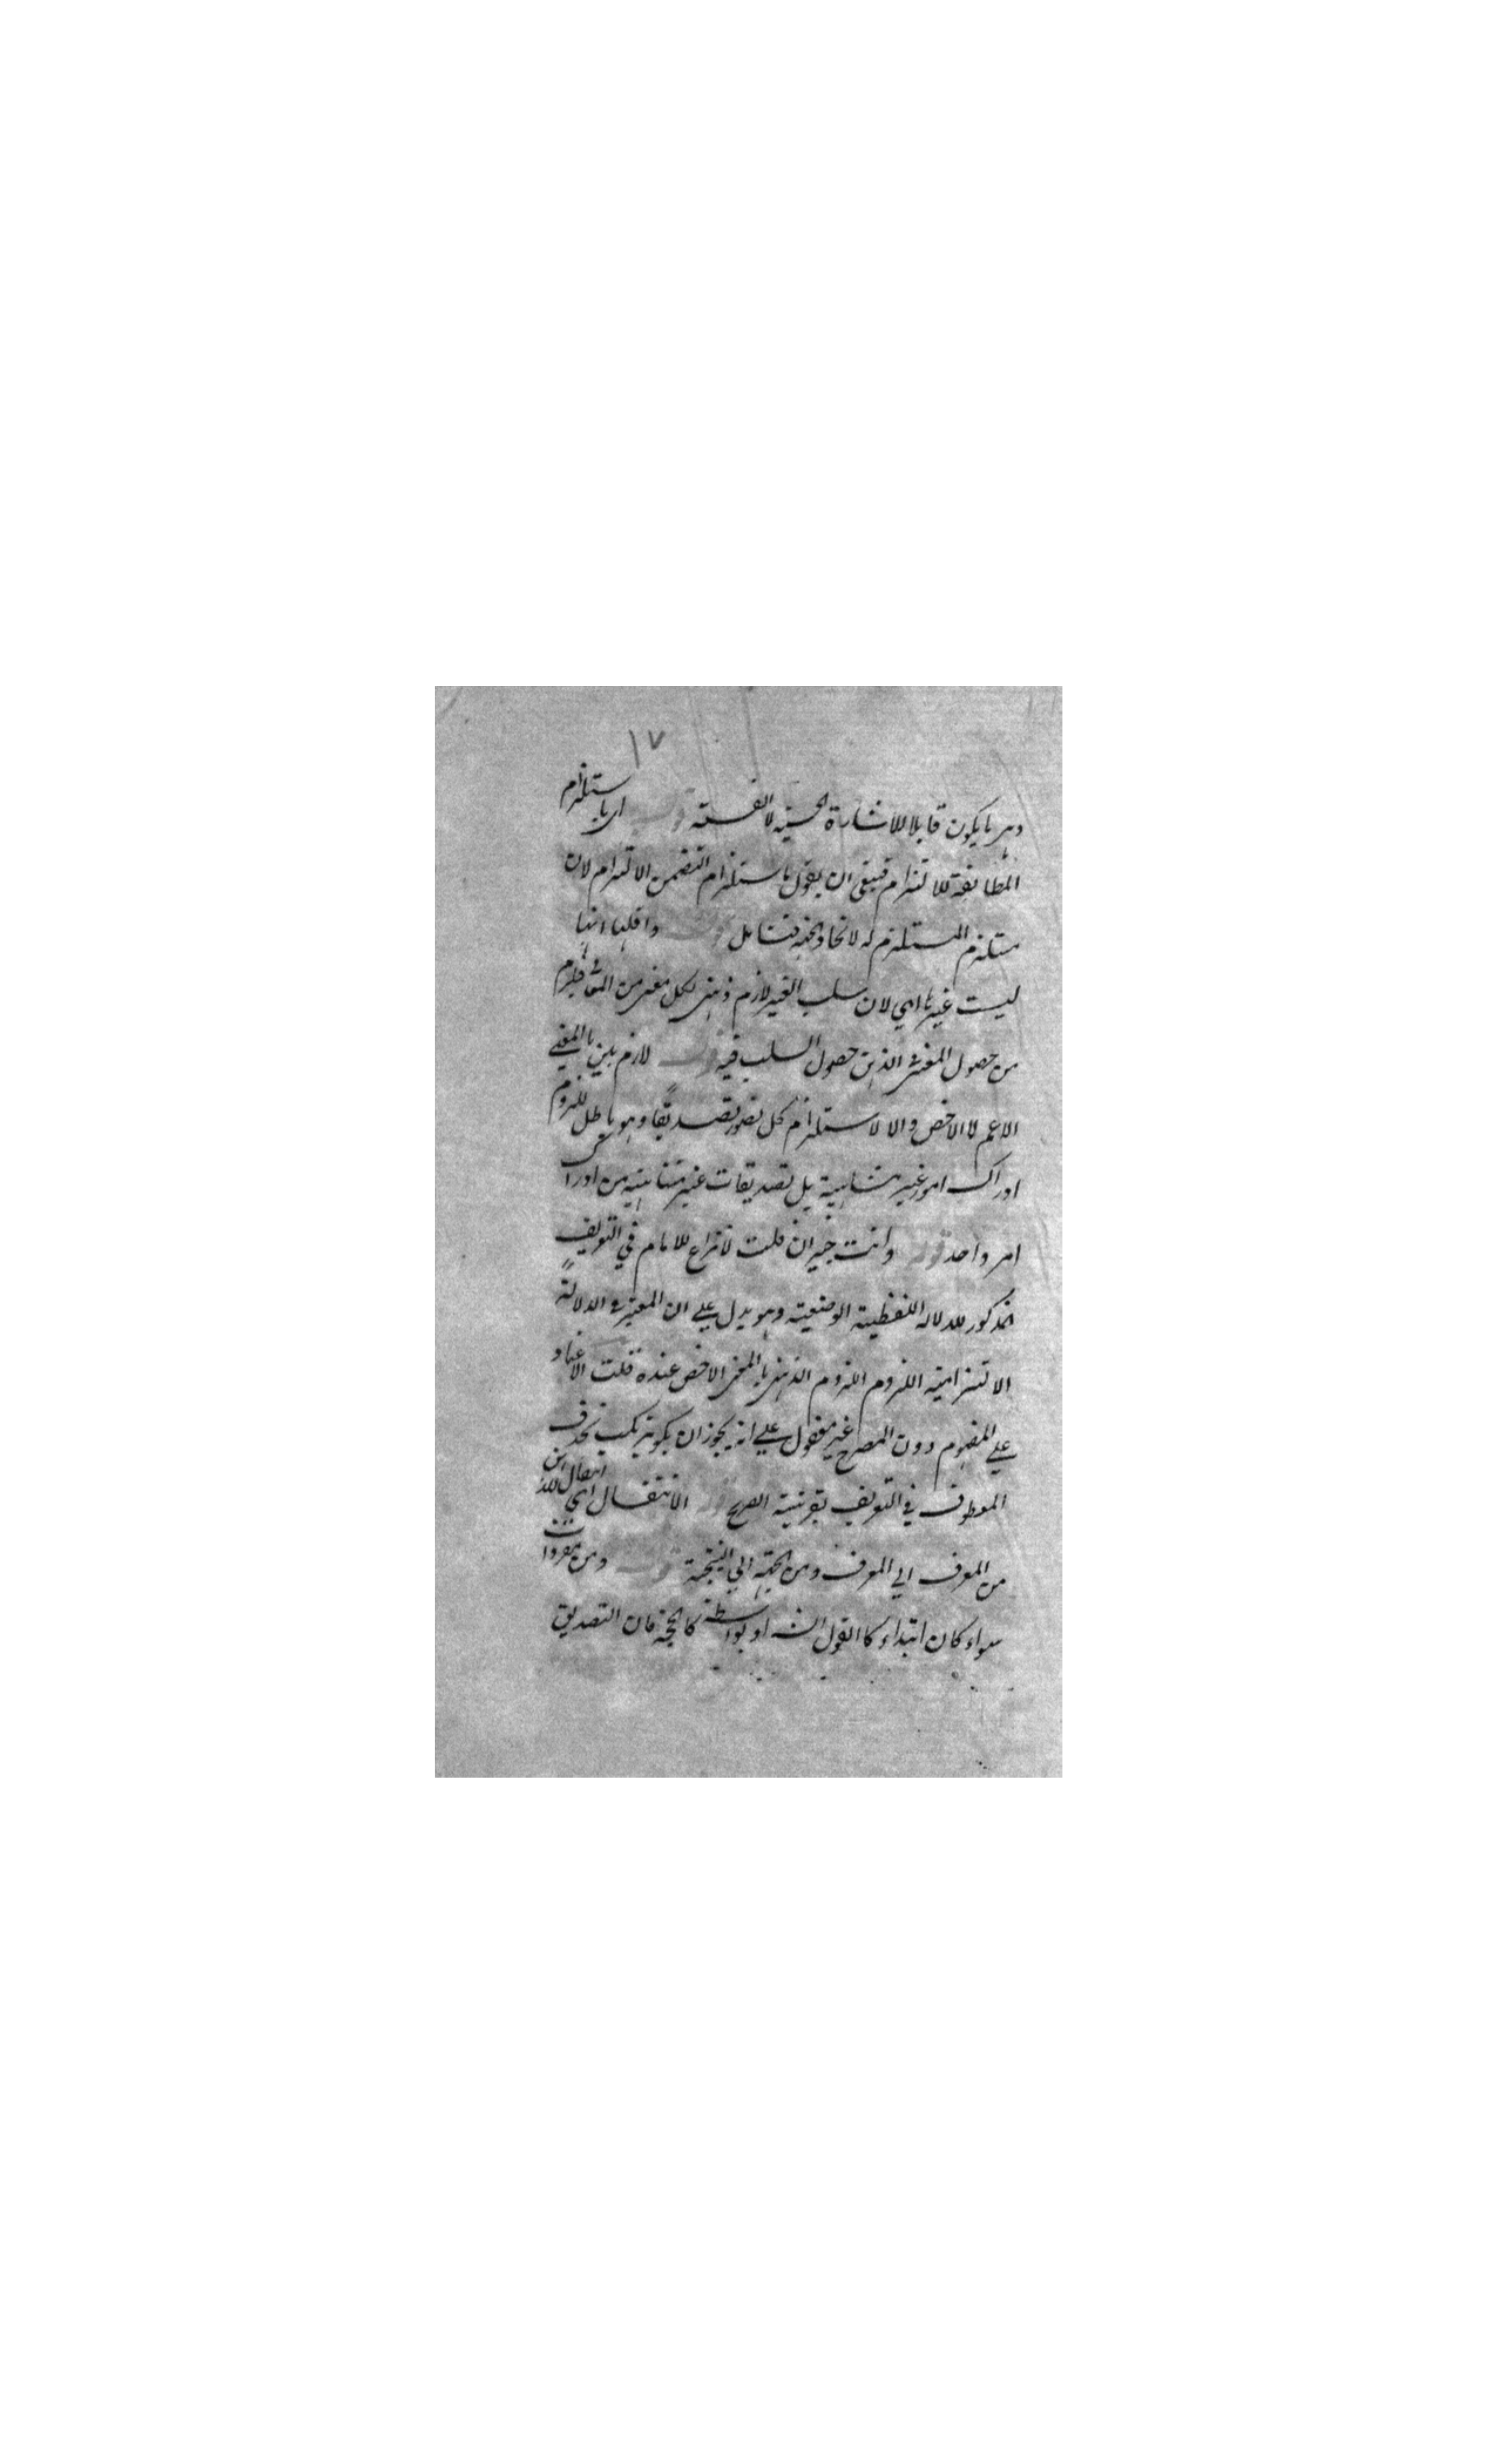 ١٧
وهي ما يكون قابلا للاشارة الحسية لا القسمة قوله اي باستلزام
المطابقة للالتزام فينبغي ان يقول باستلزام التضمن الالتزام لان
مستلزم المستلزم له لاتحاد فتامل قوله واقلها انها
ليست غيرها اي لان سلب الغير لازم ذهني لكل معنى من المعاني فيلزم
من حصول المعنى في الذهن حصول السلب فيه قوله لازم بين بالمعنى
الاعم لا الاخص والا لاستلزام كل تصور تصديقا وهو باطل للزوم
ادراك امور غير متناهية بل تصديقات غير متناهية من ادراك
امر واحد قوله وانت خبير ان قلت لا نزاع للامام في التعريف
المذكور للدلالة اللفظية الوضعية وهو يدل على ان المعتبر في الدلالة
الالتزامية اللزوم اللزوم الذهني بالمعنى الاخص عنده قلت الاعتماد
على المفهوم دون المصرح غير معقول على انه يجوز ان يكون بحذف
المعطوف في التعريف بقرينة الصريح قوله الانتقال اي انتقال الذهن
من المعرف الى المعرف ومن الحجة الى النتيجة قوله ومن مفردات
سواء كان ابتداء كالقول او بواسطة كالحجة فان التصديق